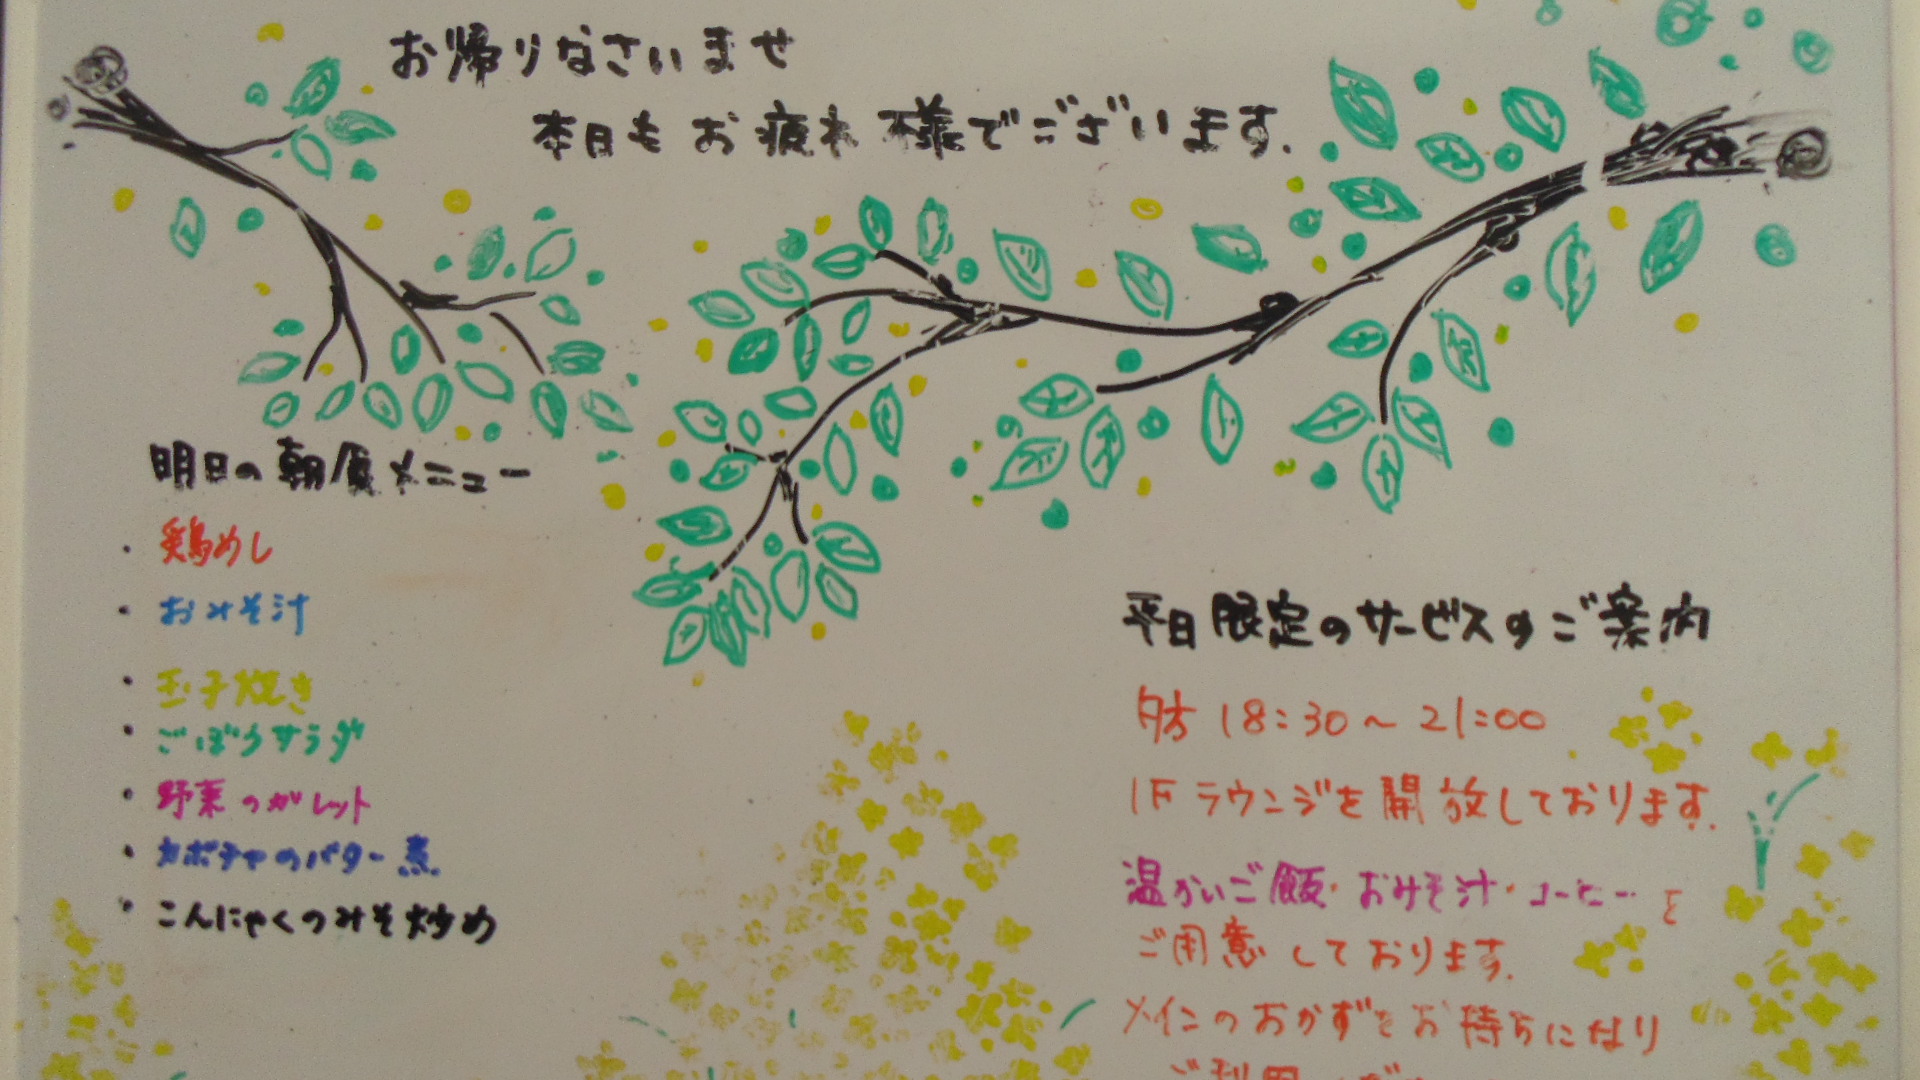 お帰りなさいませ
本日もお疲れ様でございます.
明日の朝食メニュー
・鶏めし
・おみそ汁
・玉子焼き
・ごぼうサラダ
・野菜のガレット
・カボチャのバター煮
・こんにゃくのみそ炒め
平日限定のサービスのご案内
夕方 18:30〜21:00
1Fラウンジを開放しております.
温かいご飯・おみそ汁・コーヒーを
ご用意しております.
メインのおかずをお持ちになり
ご利用